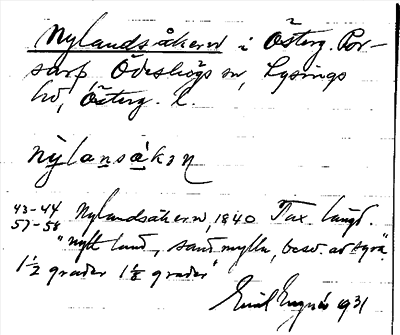 Nylandsåkern i Österg. Por-
sarp, Ödeshögs sn, Lysings
hd, Österg. l.
nỳlansåkəɳ
43-44 Nylandsåkern, 1840 Tax. längd.
57-58 "nytt land, sandmylla, besv. av syra"
1½ grader 1⅛ grader"
Emil 1931